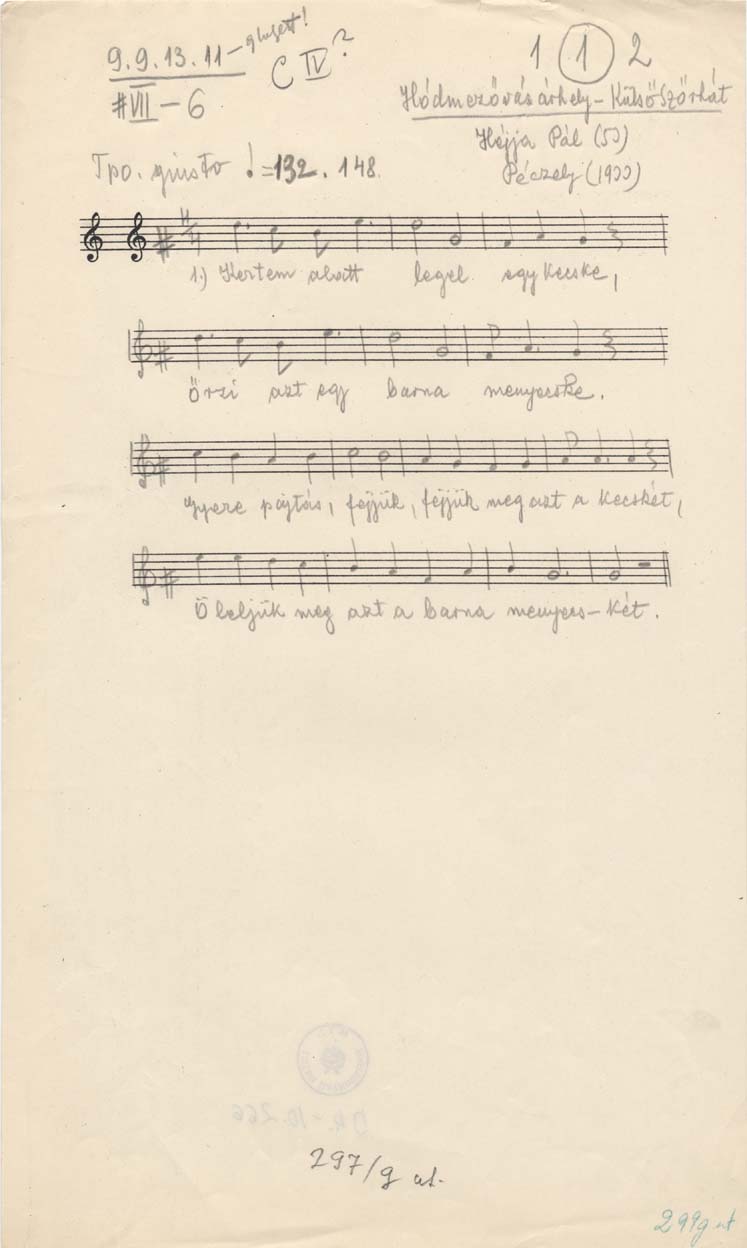 9.9.13.11
C IV?
1 1 2
#VII-6
Hódmezővásárhely-KülsőSzőrhát
Héjja Pál (53)
Tpo. giusto =132. 148.
Péczely (1933)
1.) Kertem alatt legel egy kecske,
Őrzi azt egy barna menyecske.
Gyere pajtás, fejjük, fejjük meg azt a kecskét,
Öleljük meg azt a barna menyecs-két.
297/g ut.
299g ut